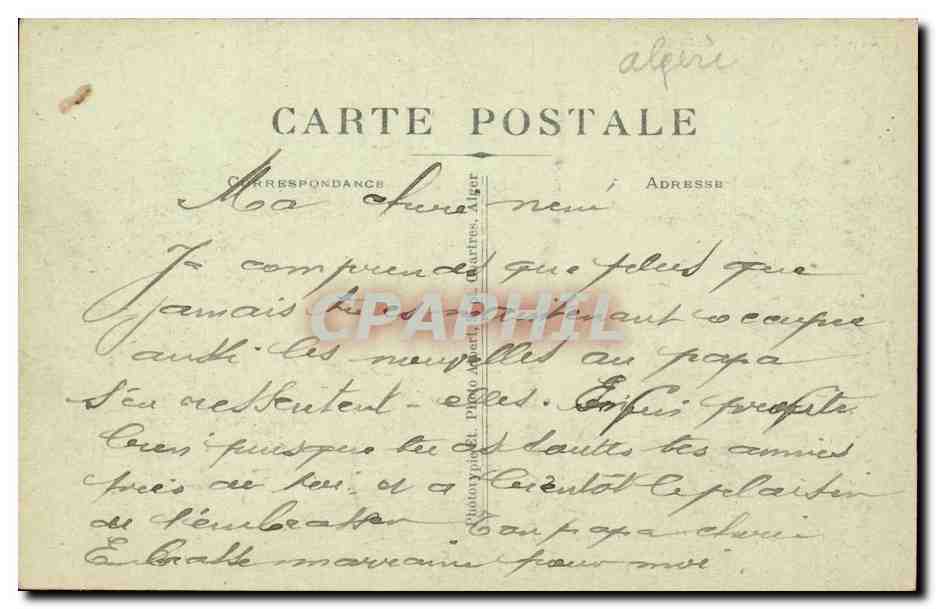 algérie
CARTE POSTALE
CORRESPONDANCE
ADRESSE
Ma chere
Je comprends que plus que
jamais tu es maintenant occupée
aussi les nouvelles au papa
s'en ressentent-elles. Enfin profite
bien puisque tu as toutes tes amies
près de toi, et a bientôt le plaisir
de t'embrasser Ton papa cheri
Embrasse marraine pour moi.
Phototypie et Photo Albert, Chartres, Alger
CPAPHIL